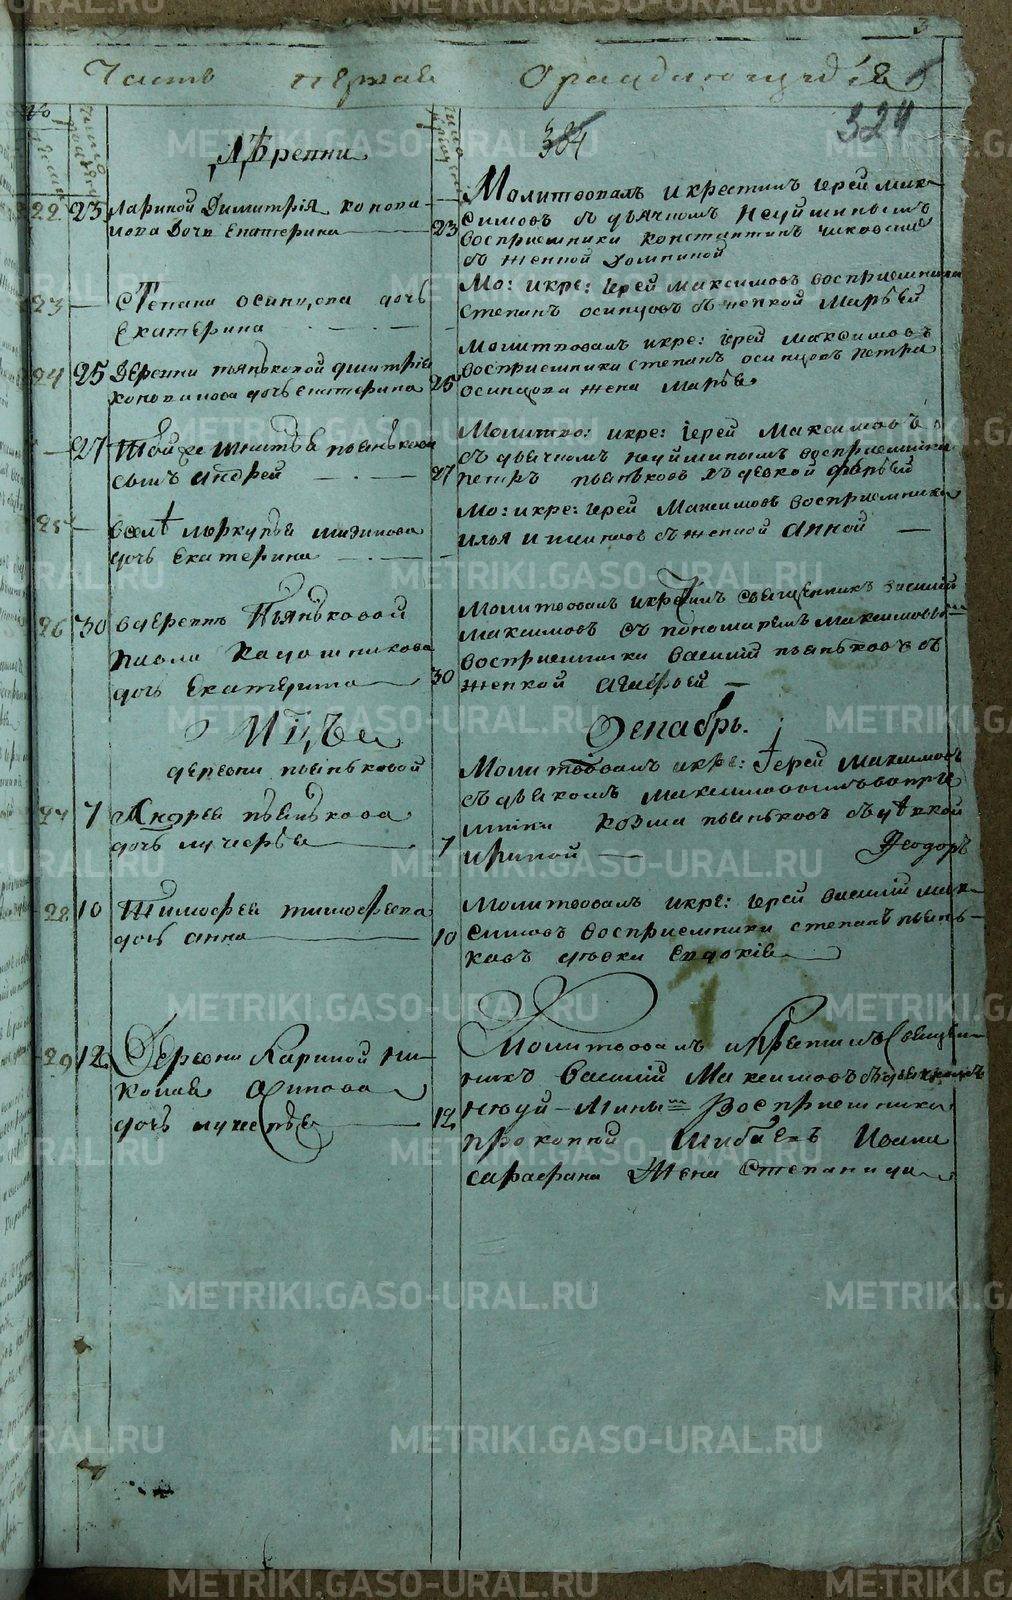 METRIKI.GASO-URAL.RU
3
Часть первая О раждающихся
324
384
Дѣревни
22 23 Лариной Димитрія конова
лова Дочь Екатерина
Молитвовалъ и крестилъ іерей мак
симовъ съ дьячкомъ Неуйминымъ
23 восприемники константинъ
съ женкой Домниной
23 Степана осипцова дочь
Екатерина
Мо: и кре: іерей максимовъ восприемники
степанъ осипцовъ съ женкой Марьей
24 25 Деревни пьянковой дмитрія
коновалова дочь екатерина
Молитвовалъ и кре: іерей максимовъ
восприемники степанъ осипцовъ петра
25 осипцова жена Марья
27 Той же пьянкова
сынъ андрей
Молитво: и кре: іерей Максимовъ
съ дьячкомъ неуйминымъ восприемники
27 петръ пьянковъ съ девкой
25 дочь Екатерина
Мо: и кре: іерей Максимовъ восприемники
илья съ женкой Анной
26 30 в деревнѣ Пьянковой
Павла Калашникова
дочь Екатерина
Молитвовалъ и крестилъ священникъ василий
максимовъ съ пономаремъ максимовымъ
восприемники василий пьянковъ съ
30 женкой агафьей
Мцъ Декабрь.
деревни пьянковой
27 7 Андрея пьянкова
дочь лукерья
Молитвовалъ и кре: Іерей максимовъ
съ дьякомъ максимовымъ воспрïе
мники Козма пьянковъ съ дѣвкой
7 ириной Феодоръ
28 10 Тимофея тимофеева
дочь анна
Молитвовалъ и кре: іерей василий мак
10 симовъ восприемники степанъ пьян-
ковъ девки Евдокія
29 12 Деревни Лариной ни
колая осипова
дочь лукерья
Молитвовалъ и крестилъ Священ
никъ василий Максимовъ съ дьячкомъ
12 неуй-мины восприемники
прокопий Шибаевъ Ивана
сарафана Жена Степанида